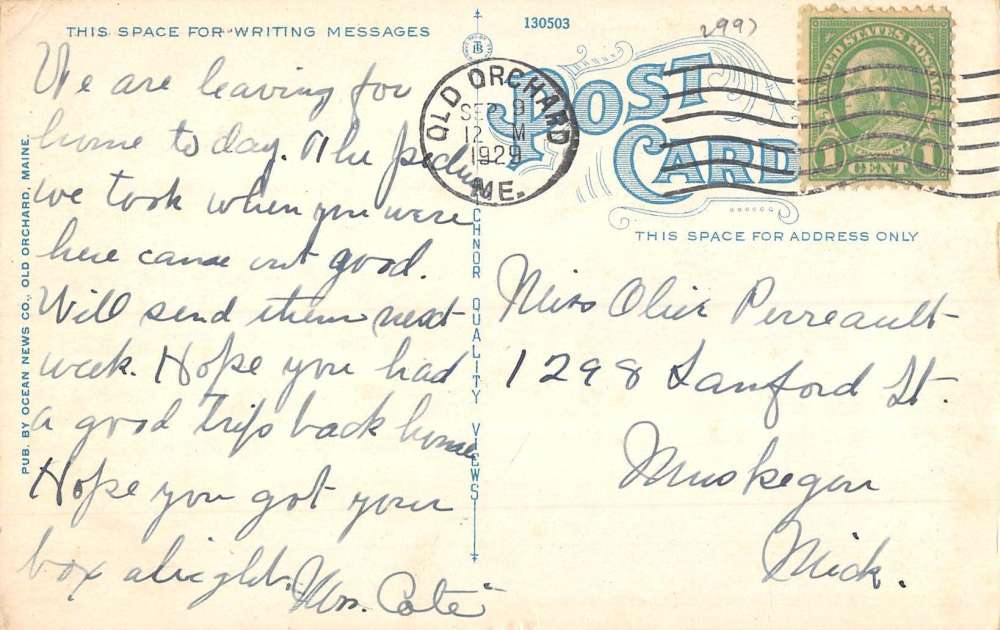 THIS SPACE FOR WRITING MESSAGES
130503
2997
We are leaving for
home to day. The pictures
we took when you were
here came out good.
Will send them next
week. Hope you had
a good trip back home
Hope you got your
box alright.
Mrs. Cote
PUB. BY OCEAN NEWS CO., OLD ORCHARD, MAINE.
OLD ORCHARD
SEP 9
12 M
1929
ME.
POST
CARD
UNITED STATES POSTAGE
FRANKLIN
1 CENT 1
THIS SPACE FOR ADDRESS ONLY
QUALITY VIEWS
Miss Olier Perreault
1298 Sanford St.
Muskegon
Mich.